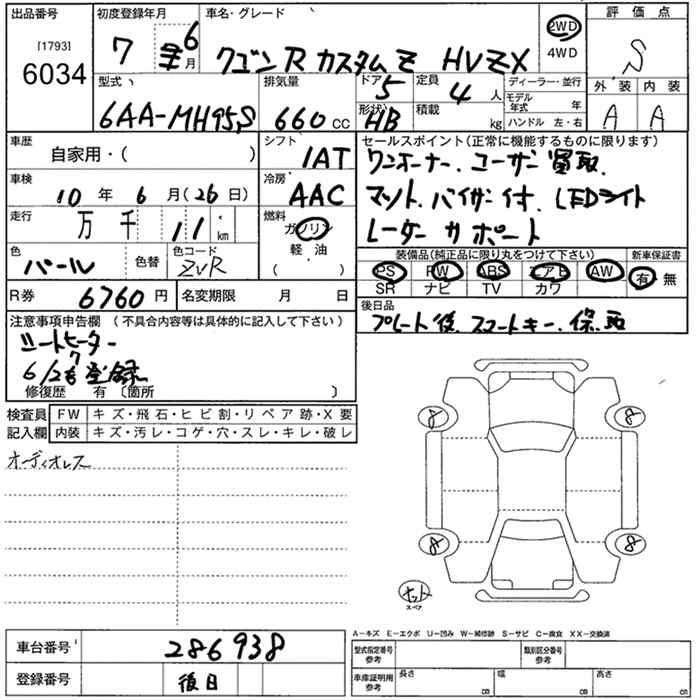 出品番号 初度登録年月 車名・グレード 評価点
[1793] 7年6月 ワゴンR カスタムZ HVZX 2WD S
6034 4WD
型式 排気量 ドア 5 定員 4人 ディーラー・並行 外装 内装
6AA-MH95S 660cc 形状 HB 積載 kg モデル年式 年 A A
ハンドル 左・右
車歴 シフト セールスポイント(正常に機能するものに限ります)
自家用・( ) IAT ワンオーナー、ユーザー買取、
車検 冷房 マット、バイザー付、LEDライト
10年6月(26日) AAC レーダーサポート
走行 燃料
万 千 11km ガソリン
軽・油
( )
色 色替 色コード 装備品(純正品に限り丸をつけて下さい) 新車保証書
パール ZVR PS PW ABS エアB AW 有・無
SR ナビ TV カワ
R券 6760円 名変期限 月 日 後日品
プレート後、スマートキー、保、取
注意事項申告欄 (不具合内容等は具体的に記入して下さい)
シートヒーター
6/26登録
修復歴 有〔箇所 〕
検査員 FW キズ・飛石・ヒビ割・リペア跡・X要
記入欄 内装 キズ・汚レ・コゲ・穴・スレ・キレ・破レ
オーディオレス
8 8
8 8
スペア
A-キズ E-エクボ U-凹み W-補修跡 S-サビ C-腐食 XX-交換済
車台番号 286938 型式指定番号 参考 類別区分番号 参考
登録番号 後日 車庫証明用 参考 長さ cm 幅 cm 高さ cm